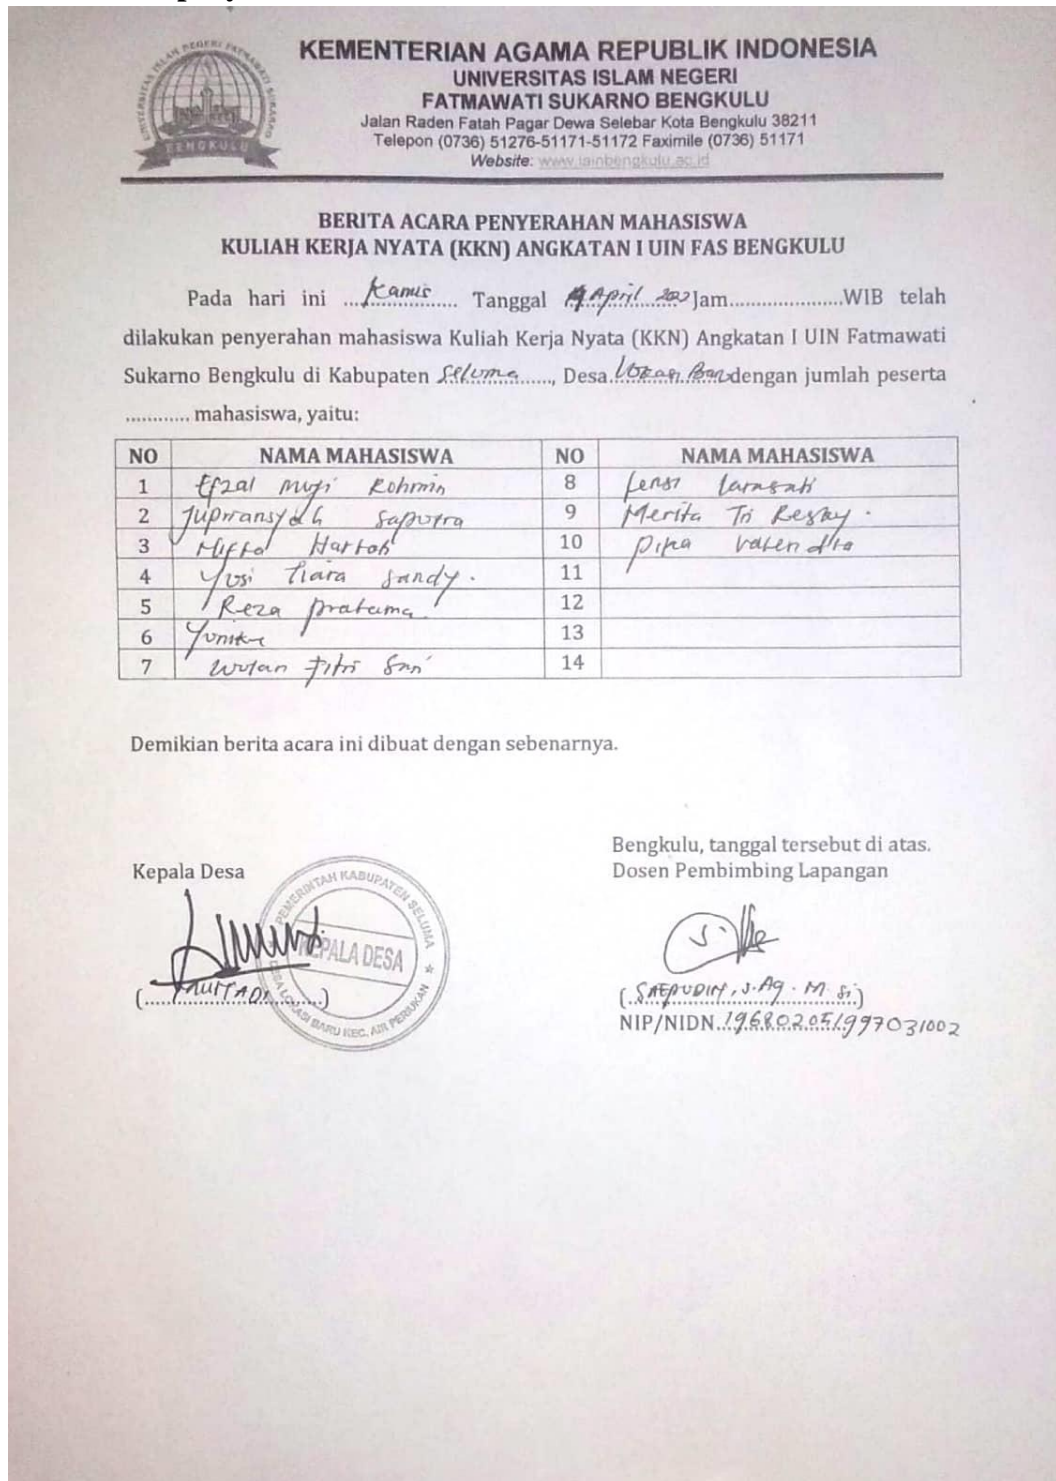 UNIVERSITAS ISLAM NEGERI FATMAWATI SUKARNO
BENGKULU
KEMENTERIAN AGAMA REPUBLIK INDONESIA
UNIVERSITAS ISLAM NEGERI
FATMAWATI SUKARNO BENGKULU
Jalan Raden Fatah Pagar Dewa Selebar Kota Bengkulu 38211
Telepon (0736) 51276-51171-51172 Faximile (0736) 51171
Website: www.iainbengkulu.ac.id
BERITA ACARA PENYERAHAN MAHASISWA
KULIAH KERJA NYATA (KKN) ANGKATAN I UIN FAS BENGKULU
Pada hari ini ...Kamis........ Tanggal April Jam....................WIB telah
dilakukan penyerahan mahasiswa Kuliah Kerja Nyata (KKN) Angkatan I UIN Fatmawati
Sukarno Bengkulu di Kabupaten Seluma......, Desa Baru dengan jumlah peserta
............ mahasiswa, yaitu:
NO NAMA MAHASISWA NO NAMA MAHASISWA
1 Efzal Rohmin 8 Larasati
2 Saputra 9 Merita Tri
3 10
4 Yosi Tiara Sandy. 11
5 Reza Pratama 12
6 13
7 Wulan Fitri Sari 14
Demikian berita acara ini dibuat dengan sebenarnya.
Bengkulu, tanggal tersebut di atas.
Kepala Desa
Dosen Pembimbing Lapangan
PEMERINTAH KABUPATEN SELUMA
KEPALA DESA
DESA LOKASI BARU KEC. AIR PERIUKAN
(SAEPUDIN, S.Ag. M.Si)
NIP/NIDN. 196802051997031002